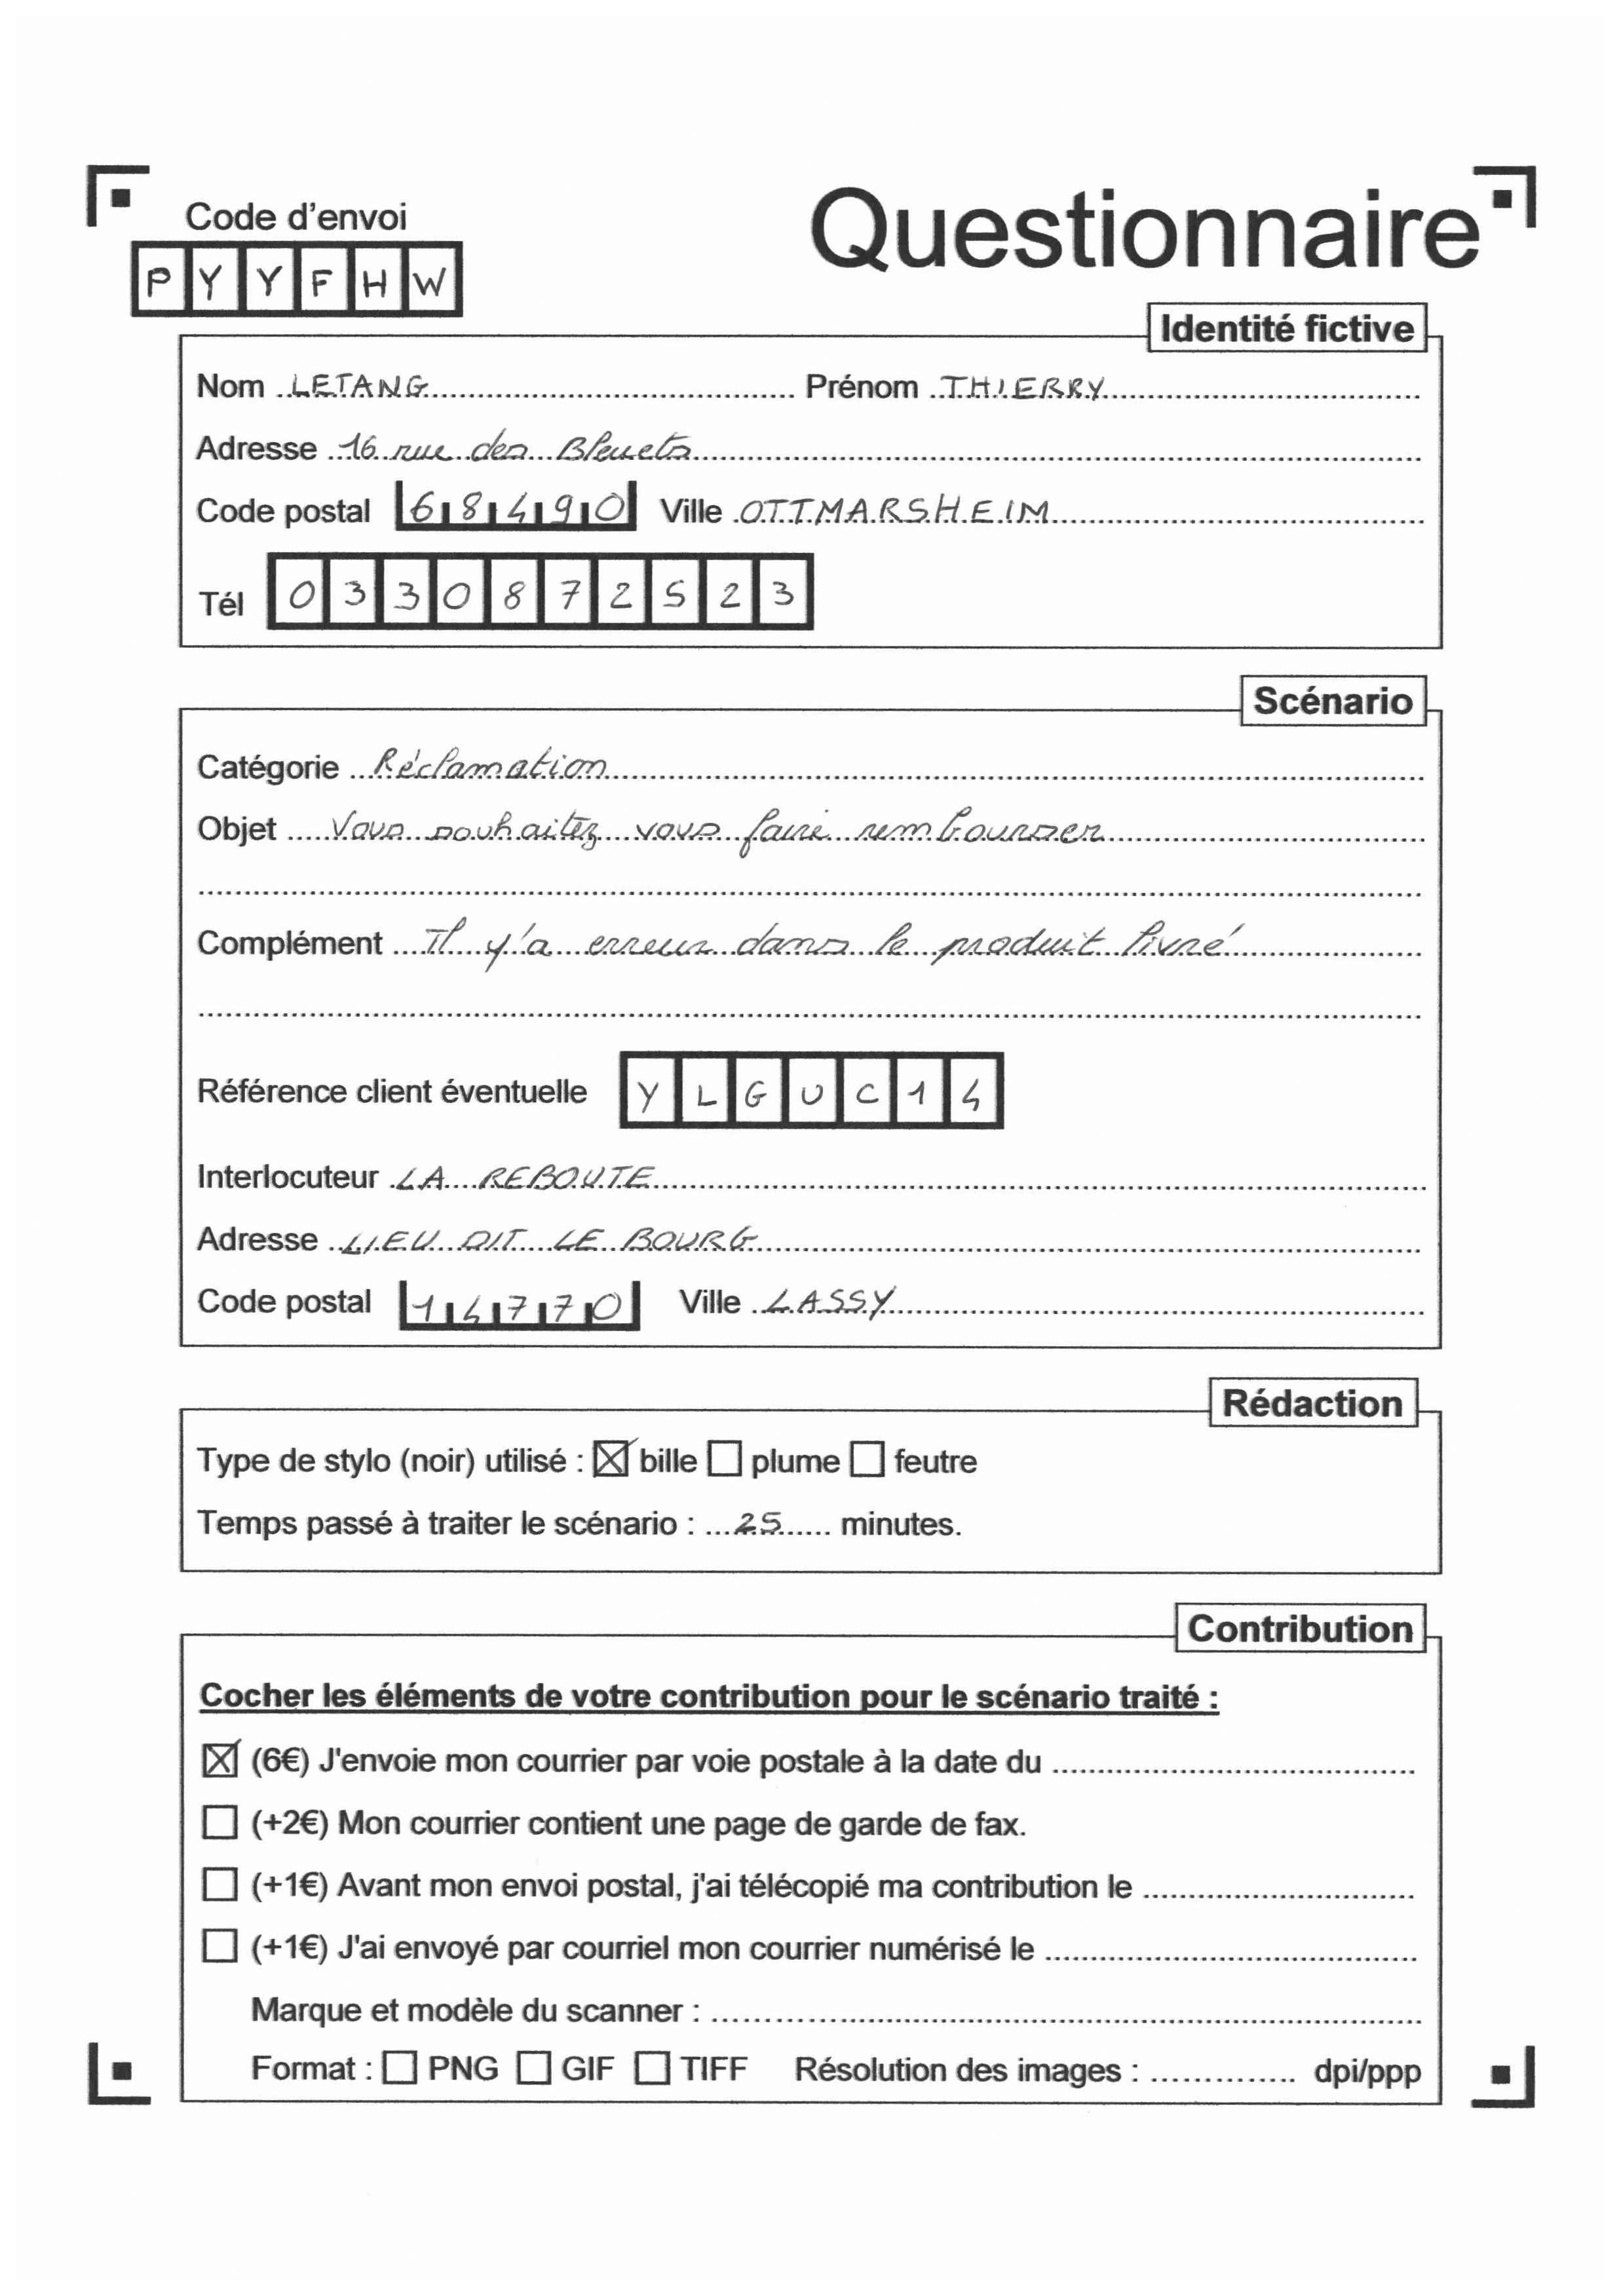 Code d'envoi
Questionnaire
PYYFHW
Identité fictive
Nom LETANG Prénom THIERRY
Adresse 16 rue des Bleuets
Code postal 68490 Ville OTTMARSHEIM
Tél 0330872523
Scénario
Catégorie Réclamation
Objet Vous souhaitez vous faire rembourser
Complément Il y'a erreur dans le produit livré
Référence client éventuelle YLGUC14
Interlocuteur LA REBOUTE
Adresse LIEU DIT LE BOURG
Code postal 14770 Ville LASSY
Rédaction
Type de stylo (noir) utilisé : ☒ bille ☐ plume ☐ feutre
Temps passé à traiter le scénario : 25 minutes.
Contribution
Cocher les éléments de votre contribution pour le scénario traité :
☒ (6€) J'envoie mon courrier par voie postale à la date du
☐ (+2€) Mon courrier contient une page de garde de fax.
☐ (+1€) Avant mon envoi postal, j'ai télécopié ma contribution le
☐ (+1€) J'ai envoyé par courriel mon courrier numérisé le
Marque et modèle du scanner :
Format : ☐ PNG ☐ GIF ☐ TIFF Résolution des images : dpi/ppp